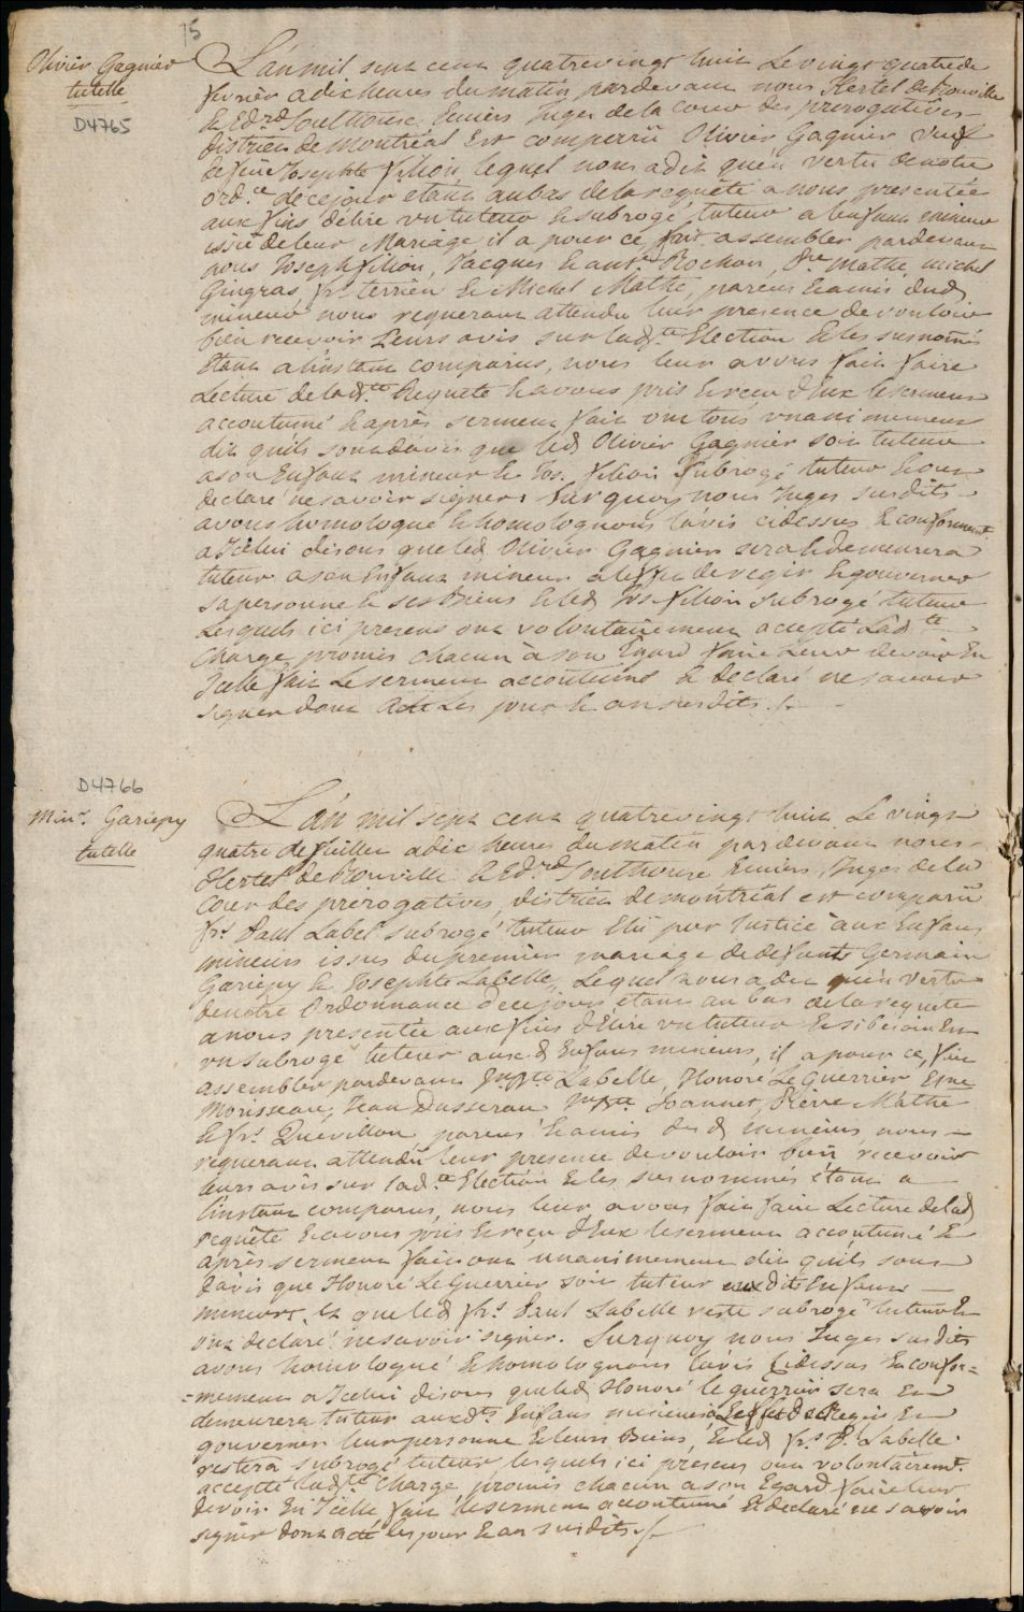 75
Olivier Gagnier
tutelle
D4765
L'an mil sept cent quatrevingt huit Le vingt quatre de
fevrier a dix heures du matin pardevant nous Hertel de Rouville
& Edrd Southouse Ecuiers Juges de la cour des prerogatives
district de Montréal est comparrü Olivier Gagnier veuf
de feüe Josephte filion lequel nous a dit qu'en vertu de notre
ordce de ce jour étant au bas de la requête a nous presentée
aux fins d'élire un tuteur & subrogé tuteur a l'enfant mineur
issüe de leur Mariage il a pour ce fait assembler pardevant
nous Joseph filion, Jacques & ant Rochon, Pre Mathe, michel
Gingras, frs terrien & Michel Mathe, parens & amis dud
mineur nous requerant attendu leur presence de vouloir
bien recevoir Leurs avis sur ladte Election & les susnomés
étant a l'instant comparus, nous leur avons fait faire
Lecture de ladte Requete & avons pris & recu d'Eux le serment
accoutumé & après serment fait ont tous unanimement
dit qu'ils sont d'avis que led Olivier Gagnier soit tuteur
a son Enfant mineur & Jos. filion subrogé tuteur & ont
declaré ne savoir signer. Surquoy nous Juges susdits
avons homologué & homologuons l'avis cidessus & conformemt
a Icelui disons que led Olivier Gagnier sera & demeurera
tuteur a son Enfant mineur a l'effet de regir & gouverner
sa personne & ses Biens & led Jos filion subrogé tuteur
Lesquels ici presens ont volontairement accepté Ladte
Charge promis chacun à son Egard faire Leur devoir En
Icelle fait Le serment accoutumé & declaré ne savoir
signer dont Acte Les jour & an susdits ./.
D4766
Minrs Gariepy
tutelle
L'an mil sept cent quatrevingt huit Le vingt
quatre de feillet a dix heures du matin pardevant nous
Hertel de Rouville & Edrd Southouse Ecuiers Juges de la
Cour des prérogatives, district de montréal est comparü
frs Paul Label subrogé tuteur Elü par Justice aux Enfans
mineurs issus du premier mariage de defunts Germain
Gariepy & Josephte Labelle, Lequel nous a dit qu'en vertu
de notre Ordonnance de ce jour étant au bas de la requete
a nous presentée aux fins d'Elire un tuteur & si besoin En
un subrogé tuteur auxd Enfans mineurs, il a pour ce, fait
assembler pardevant Jn Bte Labelle, Honoré Le Guerrier Etne
Morisseau, Jean Dusserau Jn Bte Joannet, Pierre Mathe
& frs Quévillon parens & amis desd mineurs nous
requerant attendü leur presence de vouloir bien recevoir
leurs avis sur ladte Election & les susnommés étant a
l'instant comparus, nous leur avons fait faire Lecture de lad
requête & avons pris & recu d'Eux le serment accoutumé &
après serment fait ont unanimement dit qu'ils sont
d'avis que Honoré Le Guerrier soit tuteur auxdits Enfans
mineurs, & que led frs Paul Labelle reste subrogé tuteur &
ont declaré ne savoir signer. Surquoy nous Juges susdits
avons homologué & homologuons l'avis Cidessus En confor=
=mement a Icelui disons que led Honoré le guerrier sera &
demeurera tuteur auxdts Enfans mineurs a L'effet de Regir &
gouverner leur personne & leurs Biens, & led frs P. Labelle
restera subrogé tuteur lesquels ici presens ont volontairemt
accepté ladte Charge promis chacun a son Egard faire leur
devoir En Icelle fait le serment accoutumé & declaré ne savoir
signer dont acte les jour & an susdits ./.